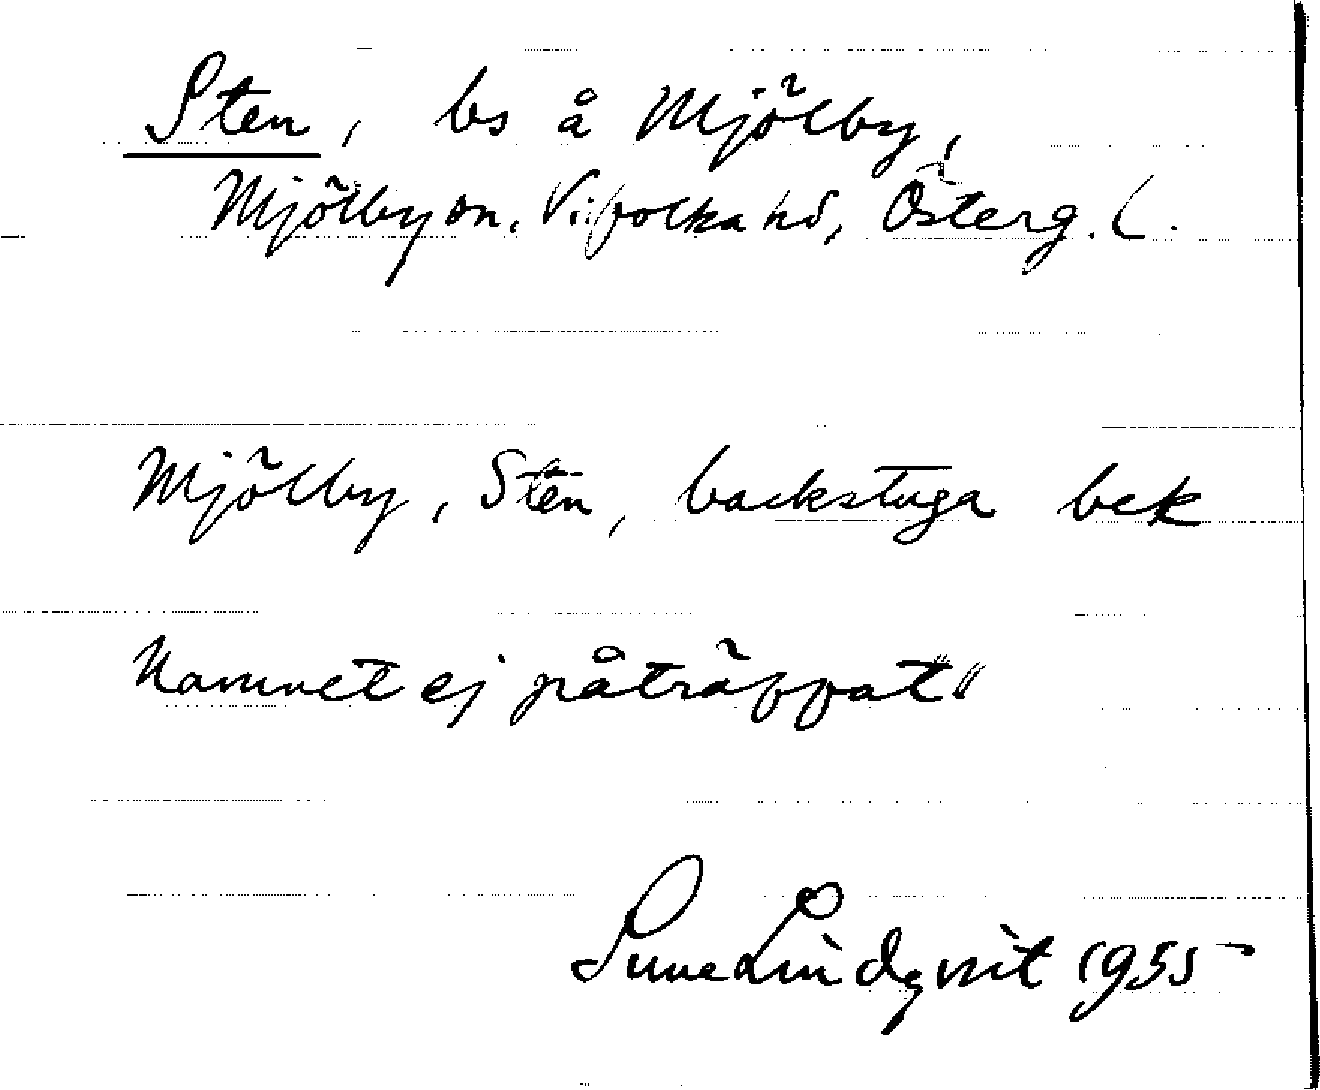 Sten, bs å Mjölby,
Mjölby sn, Vifolka hd, Österg. L.
Mjölby, Sten, backstuga bek
Namnet ej påträffat"
Sune Lindqvist 1955